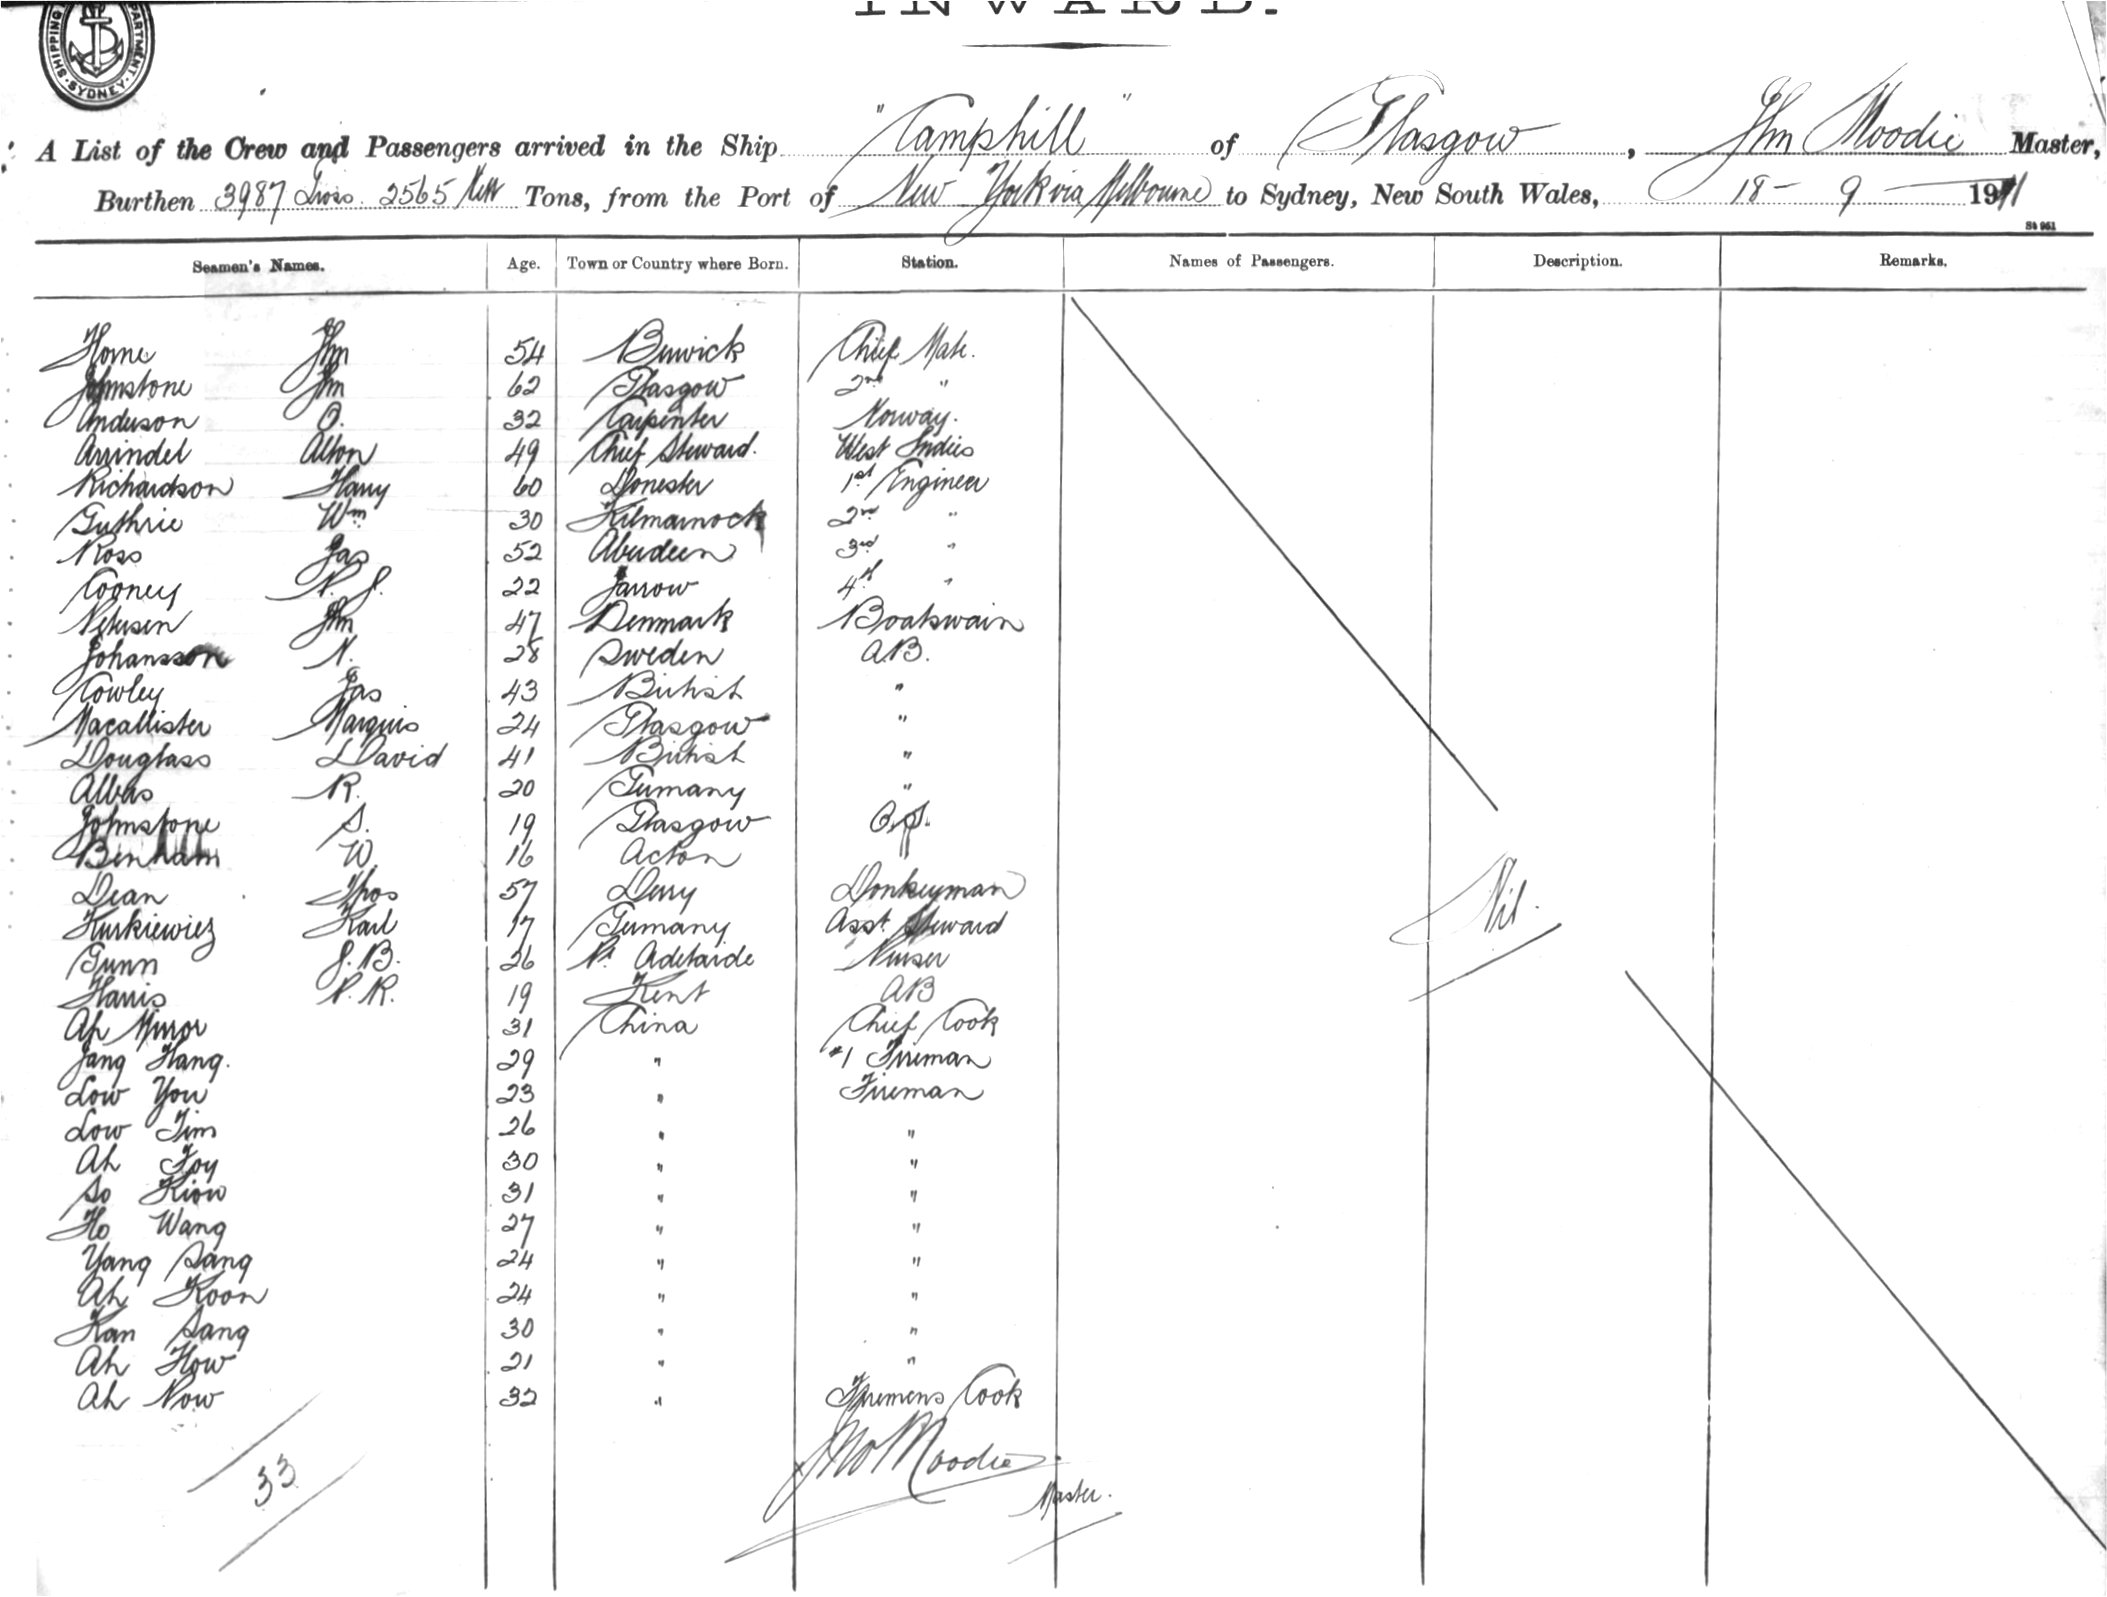 INWARD.
SHIPPING DEPARTMENT. SYDNEY
A List of the Crew and Passengers arrived in the Ship "Camphill" of Glasgow, Jhn Moodie Master,
Burthen 3987 Gross 2565 Nett Tons, from the Port of New York via Melbourne to Sydney, New South Wales, 18 - 9 - 1911
St 951
Seamen's Names. Age. Town or Country where Born. Station. Names of Passengers. Description. Remarks.
Horne Jhn 54 Berwick Chief Mate.
Johnstone Jhn 62 Glasgow 2nd "
Anderson O. 32 Carpenter Norway.
Arrindel Alton 49 Chief Steward. West Indies
Richardson Harry 60 1st Engineer
Guthrie Wm 30 Kilmarnock 2nd "
Ross Jas 52 Aberdeen 3rd "
Cooney P. J. 22 Jarrow 4th "
Petersen Jhn 47 Denmark Boatswain
Johansson N. 28 Sweden AB.
Cowley Jas 43 British "
Macallister Marquis 24 Glasgow "
Douglass David 41 British "
Albas R. 20 Germany "
Johnstone S. 19 Glasgow O.S.
Benham W. 16 Acton "
Dean Thos 57 Derry Donkeyman
Kurkiewiez Karl 17 Germany Asst Steward
Gunn J. B. 26 Pt Adelaide Purser
Harris P. R. 19 Kent AB
Ah 31 China Chief Cook
Jang Hang. 29 " #1 Fireman
Low You 23 " Fireman
Low Tim 26 " "
Ah Foy 30 " "
So Kiow 31 " "
Ho Wang 27 " "
Yang Sang 24 " "
Ah Koon 24 " "
Kan Sang 30 " "
Ah How 21 " "
Ah Now 32 " Firemens Cook
Nil.
Jno Moodie
Master.
33